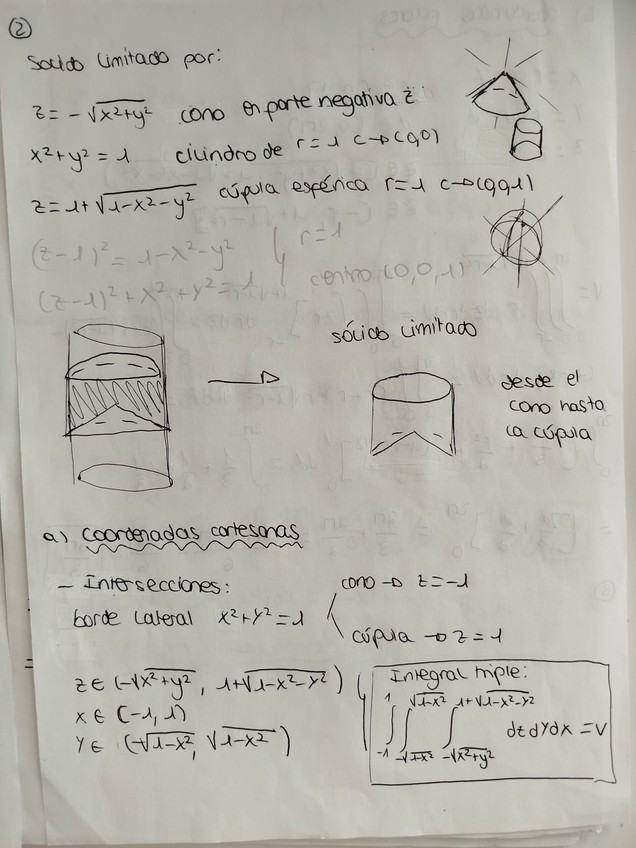 ②
Sólido limitado por:
z = -√x²+y² cono en parte negativa z
x²+y² = 1 cilindro de r=1 c→(0,0)
z = 1+√1-x²-y² cúpula esférica r=1 c→(0,0,1)
(z-1)² = 1-x²-y² r=1
(z-1)²+x²+y²=1 centro (0,0,1)
sólido limitado
desde el
cono hasta
la cúpula
a) coordenadas cartesianas
- Intersecciones:
borde lateral x²+y²=1
cono → z=-1
cúpula → z=1
z ∈ (-√x²+y², 1+√1-x²-y²)
x ∈ (-1, 1)
y ∈ (-√1-x², √1-x²)
Integral triple:
∫₋₁¹ ∫_{-√1-x²}^{√1-x²} ∫_{-√x²+y²}^{1+√1-x²-y²} dz dy dx = V